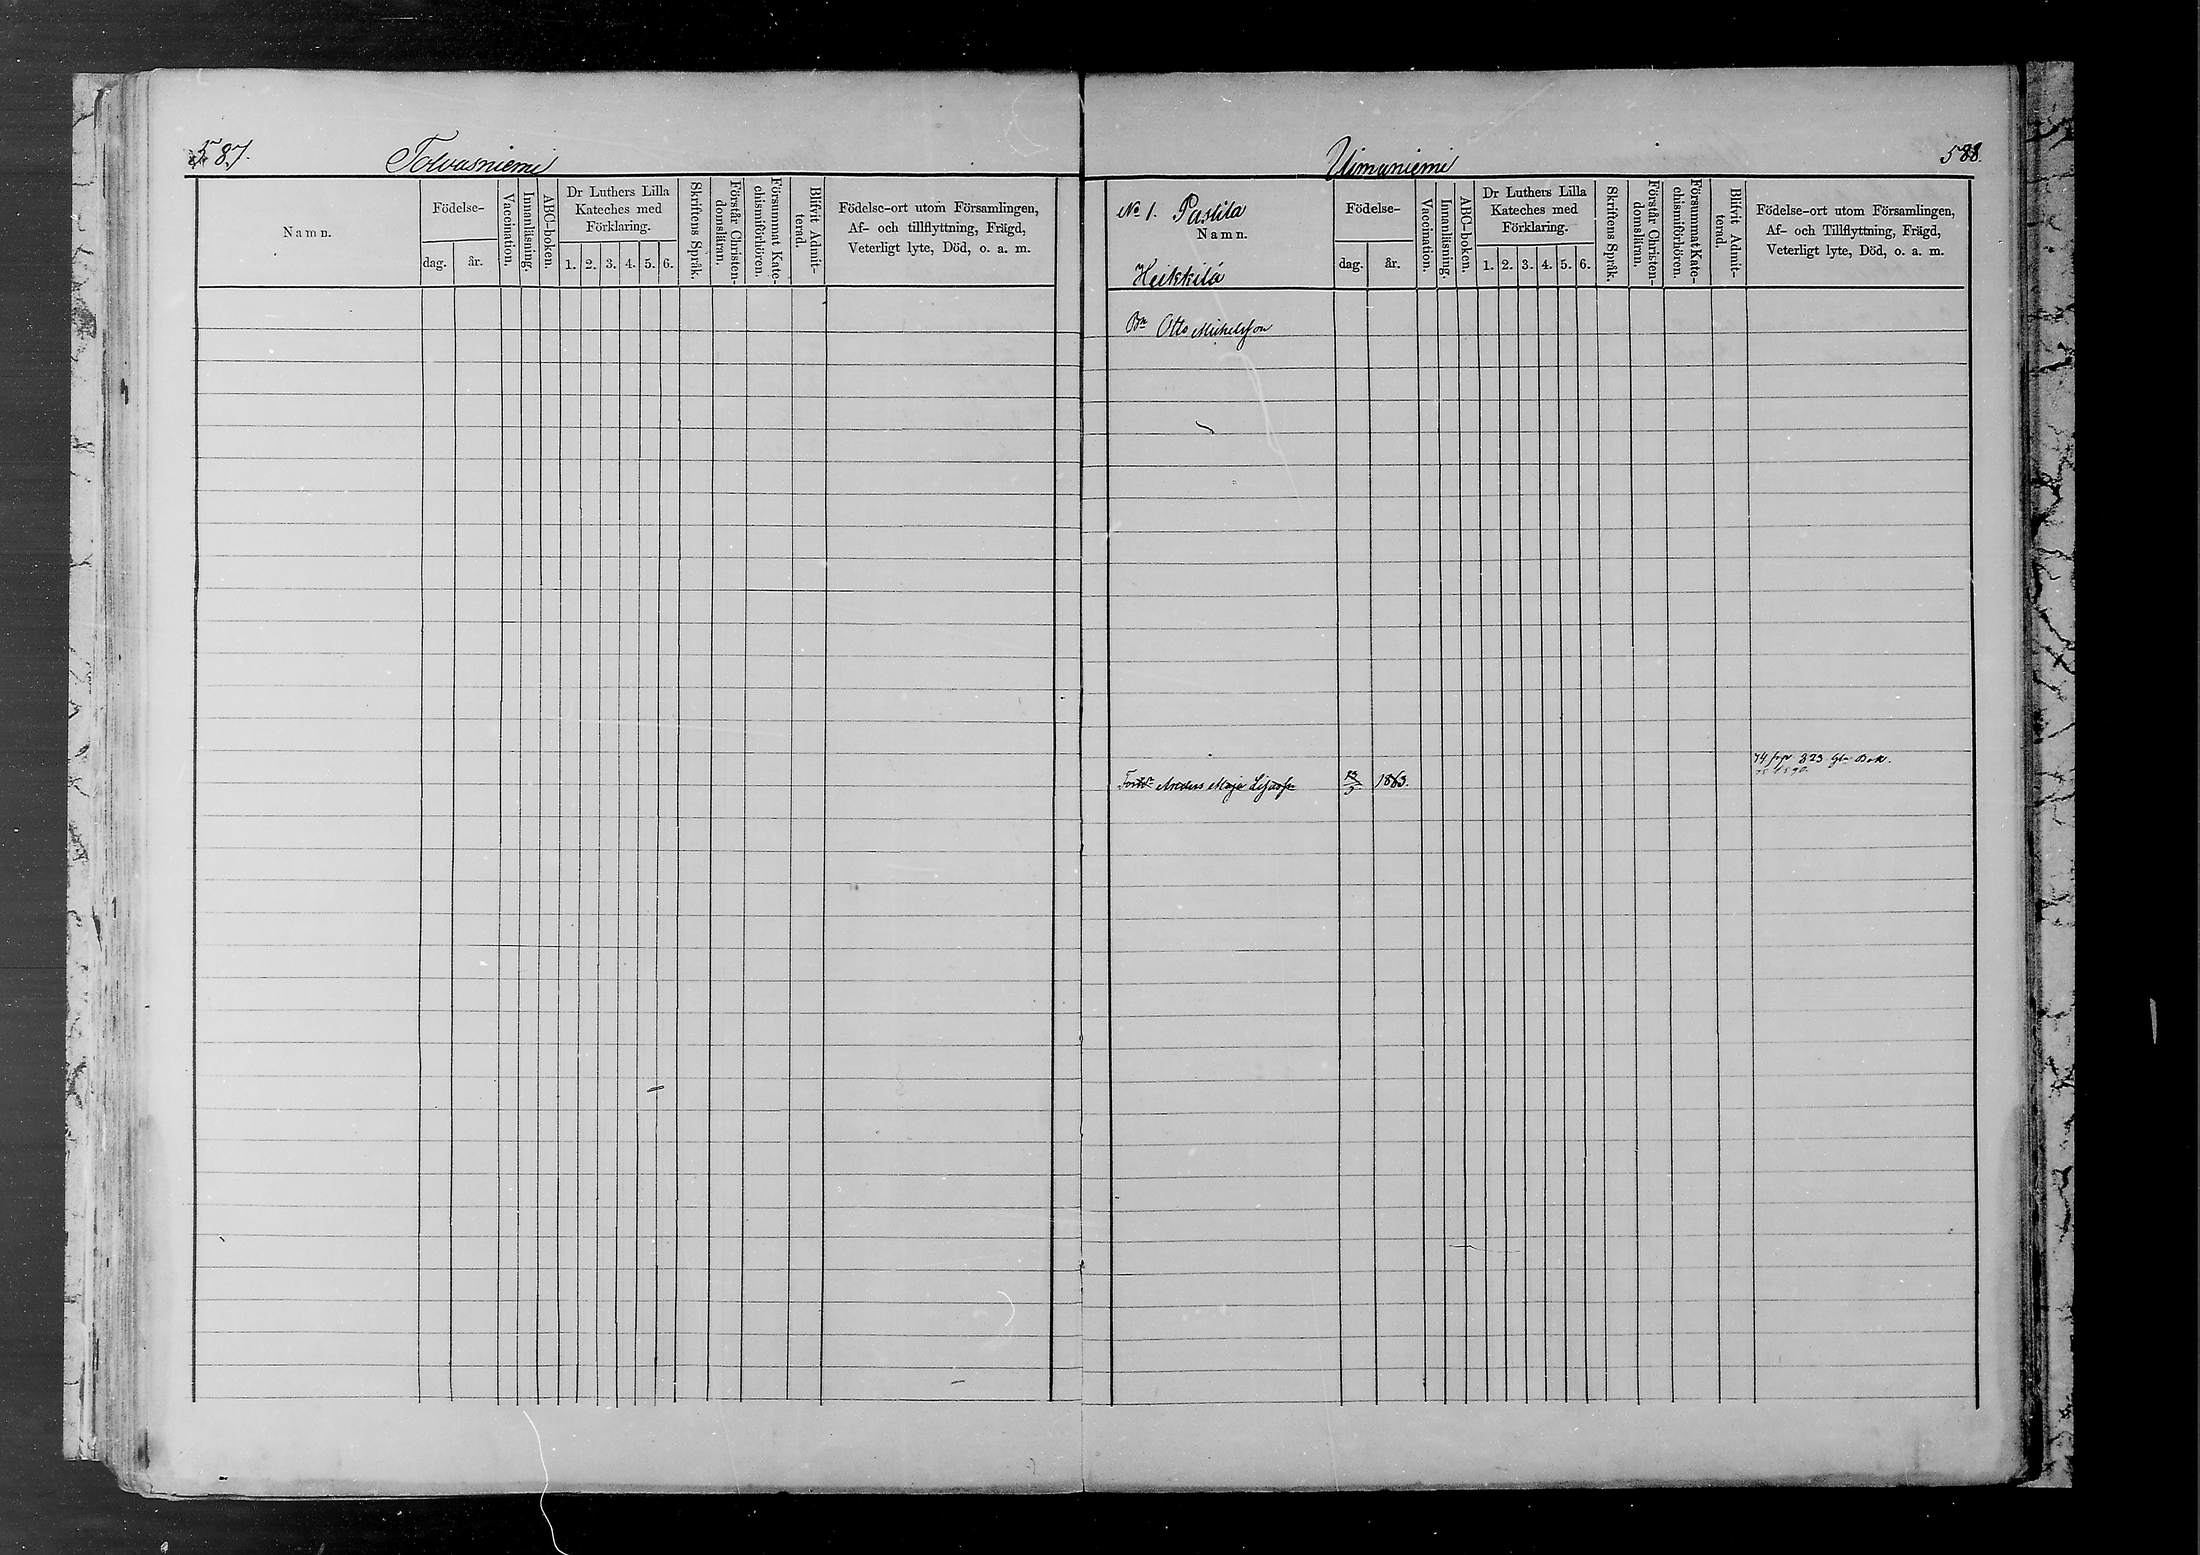 587.
Tolvasniemi
Namn.
Födelse-
dag. år.
Vaccination.
Innanläsning.
ABC-boken.
Dr Luthers Lilla
Kateches med
Förklaring.
1. 2. 3. 4. 5. 6.
Skriftens Språk.
Förstår Christen-
domslärnn.
Försummat Kate-
chismiförhören.
Blifvit Admit-
terad.
Födelse-ort utom Församlingen,
Af- och tillflyttning, Frägd,
Veterligt lyte, Död, o. a. m.
Uimaniemi
588.
No 1. Pastila
Namn.
Heikkilä
Födelse-
dag. år.
Vaccination.
Innanläsning.
ABC-boken.
Dr Luthers Lilla
Kateches med
Förklaring.
1. 2. 3. 4. 5. 6.
Skriftens Språk.
Förstår Christen-
domslärnn.
Försummat Kate-
chismiförhören.
Blifvit Admit-
terad.
Födelse-ort utom Församlingen,
Af- och Tillflyttning, Frägd,
Veterligt lyte, Död, o. a. m.
Bn Otto Michelsson
74 823 Gla Bok.
Anders Maja 1863.